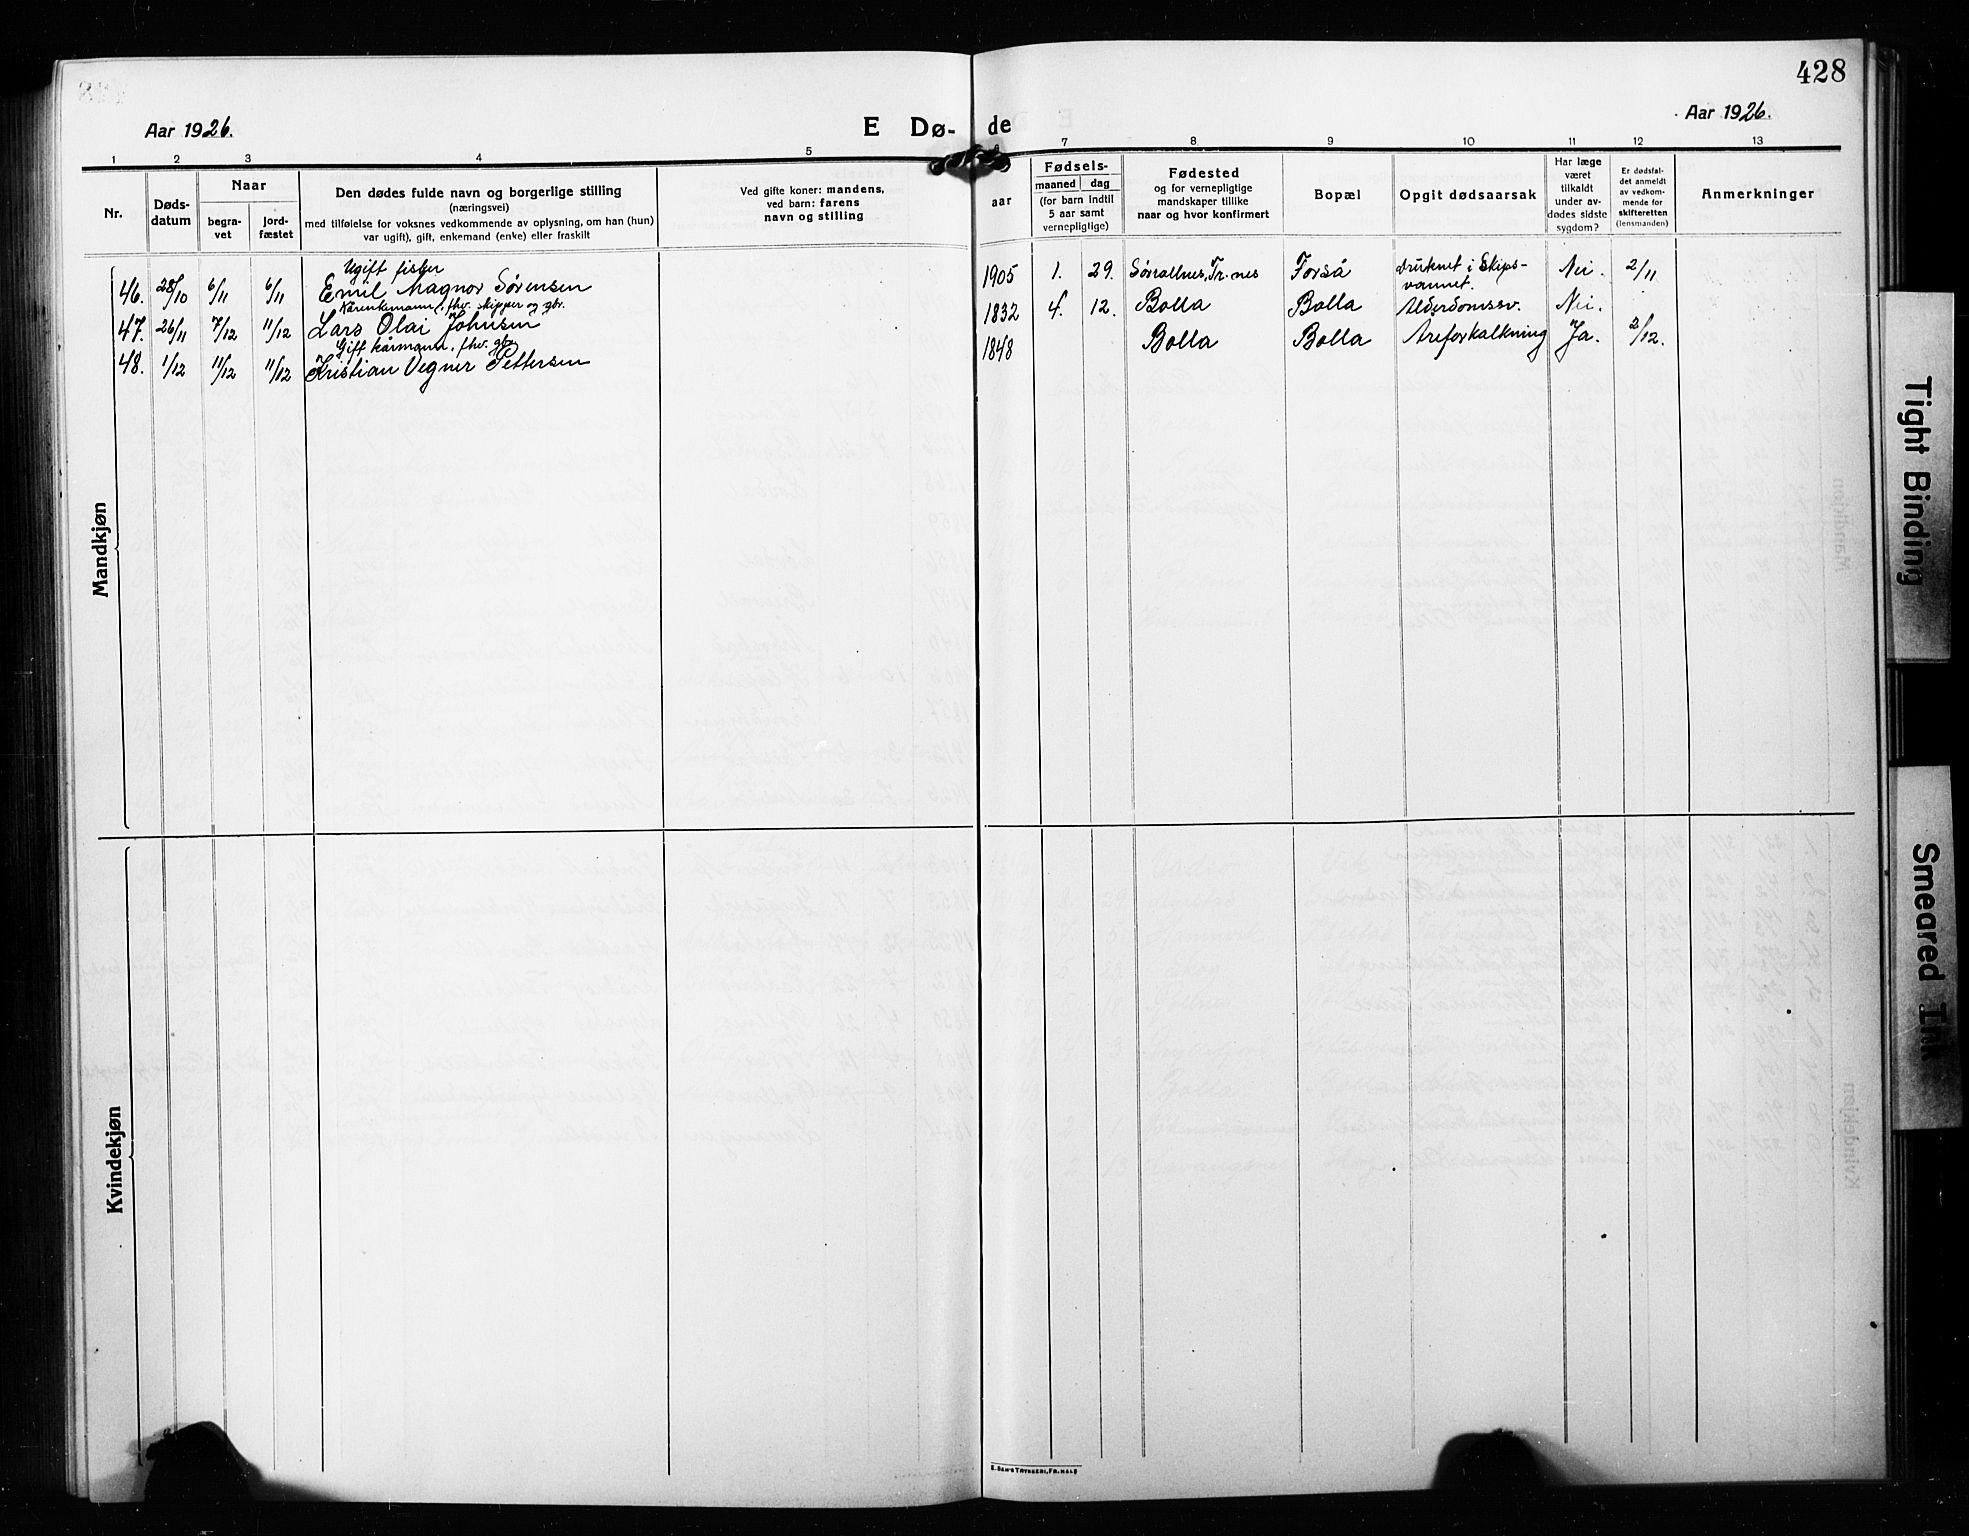 428
Aar 1926.
E Dø- de
Aar 1926.
1 2 3 4 5 6 7 8 9 10 11 12 13
Nr.
Døds-
datum
Naar
begra-
vet
jord-
fæstet
Den dødes fulde navn og borgerlige stilling
(næringsvei)
med tilføielse for voksnes vedkommende av oplysning, om han (hun)
var ugift), gift, enkemand (enke) eller fraskilt
Ved gifte koner: mandens,
ved barn: farens
navn og stilling
Fødsels-
aar
maaned dag
(for barn indtil
5 aar samt
vernepligtige)
Fødested
og for vernepligtige
mandskaper tillike
naar og hvor konfirmert
Bopæl
Opgit dødsaarsak
Har læge
været
tilkaldt
under av-
dødes sidste
sygdom?
Er dødsfal-
det anmeldt
av vedkom-
mende for
skifteretten
(lensmanden)
Anmerkninger
Mandkjøn
Ugift fisker
46. 28/10 6/11 6/11 Emil Magnor Sørensen 1905 1. 29. Sørrollnes, Tr.nes Forså druknet i Skips- Nei. 2/11
vannet.
Kårenkemann, fhv. skipper og gbr.
47. 26/11 7/12 11/12 Lars Olai Johnsen 1832 4. 12. Bolla Bolla Alderdomssv. Nei.
Gift kårmann, fhv. gbr.
48. 1/12 11/12 11/12 Kristian Vegner Pettersen 1848 Bolla Bolla Areforkalkning Ja. 2/12.
Kvindekjøn
Tight Binding
Smeared Ink